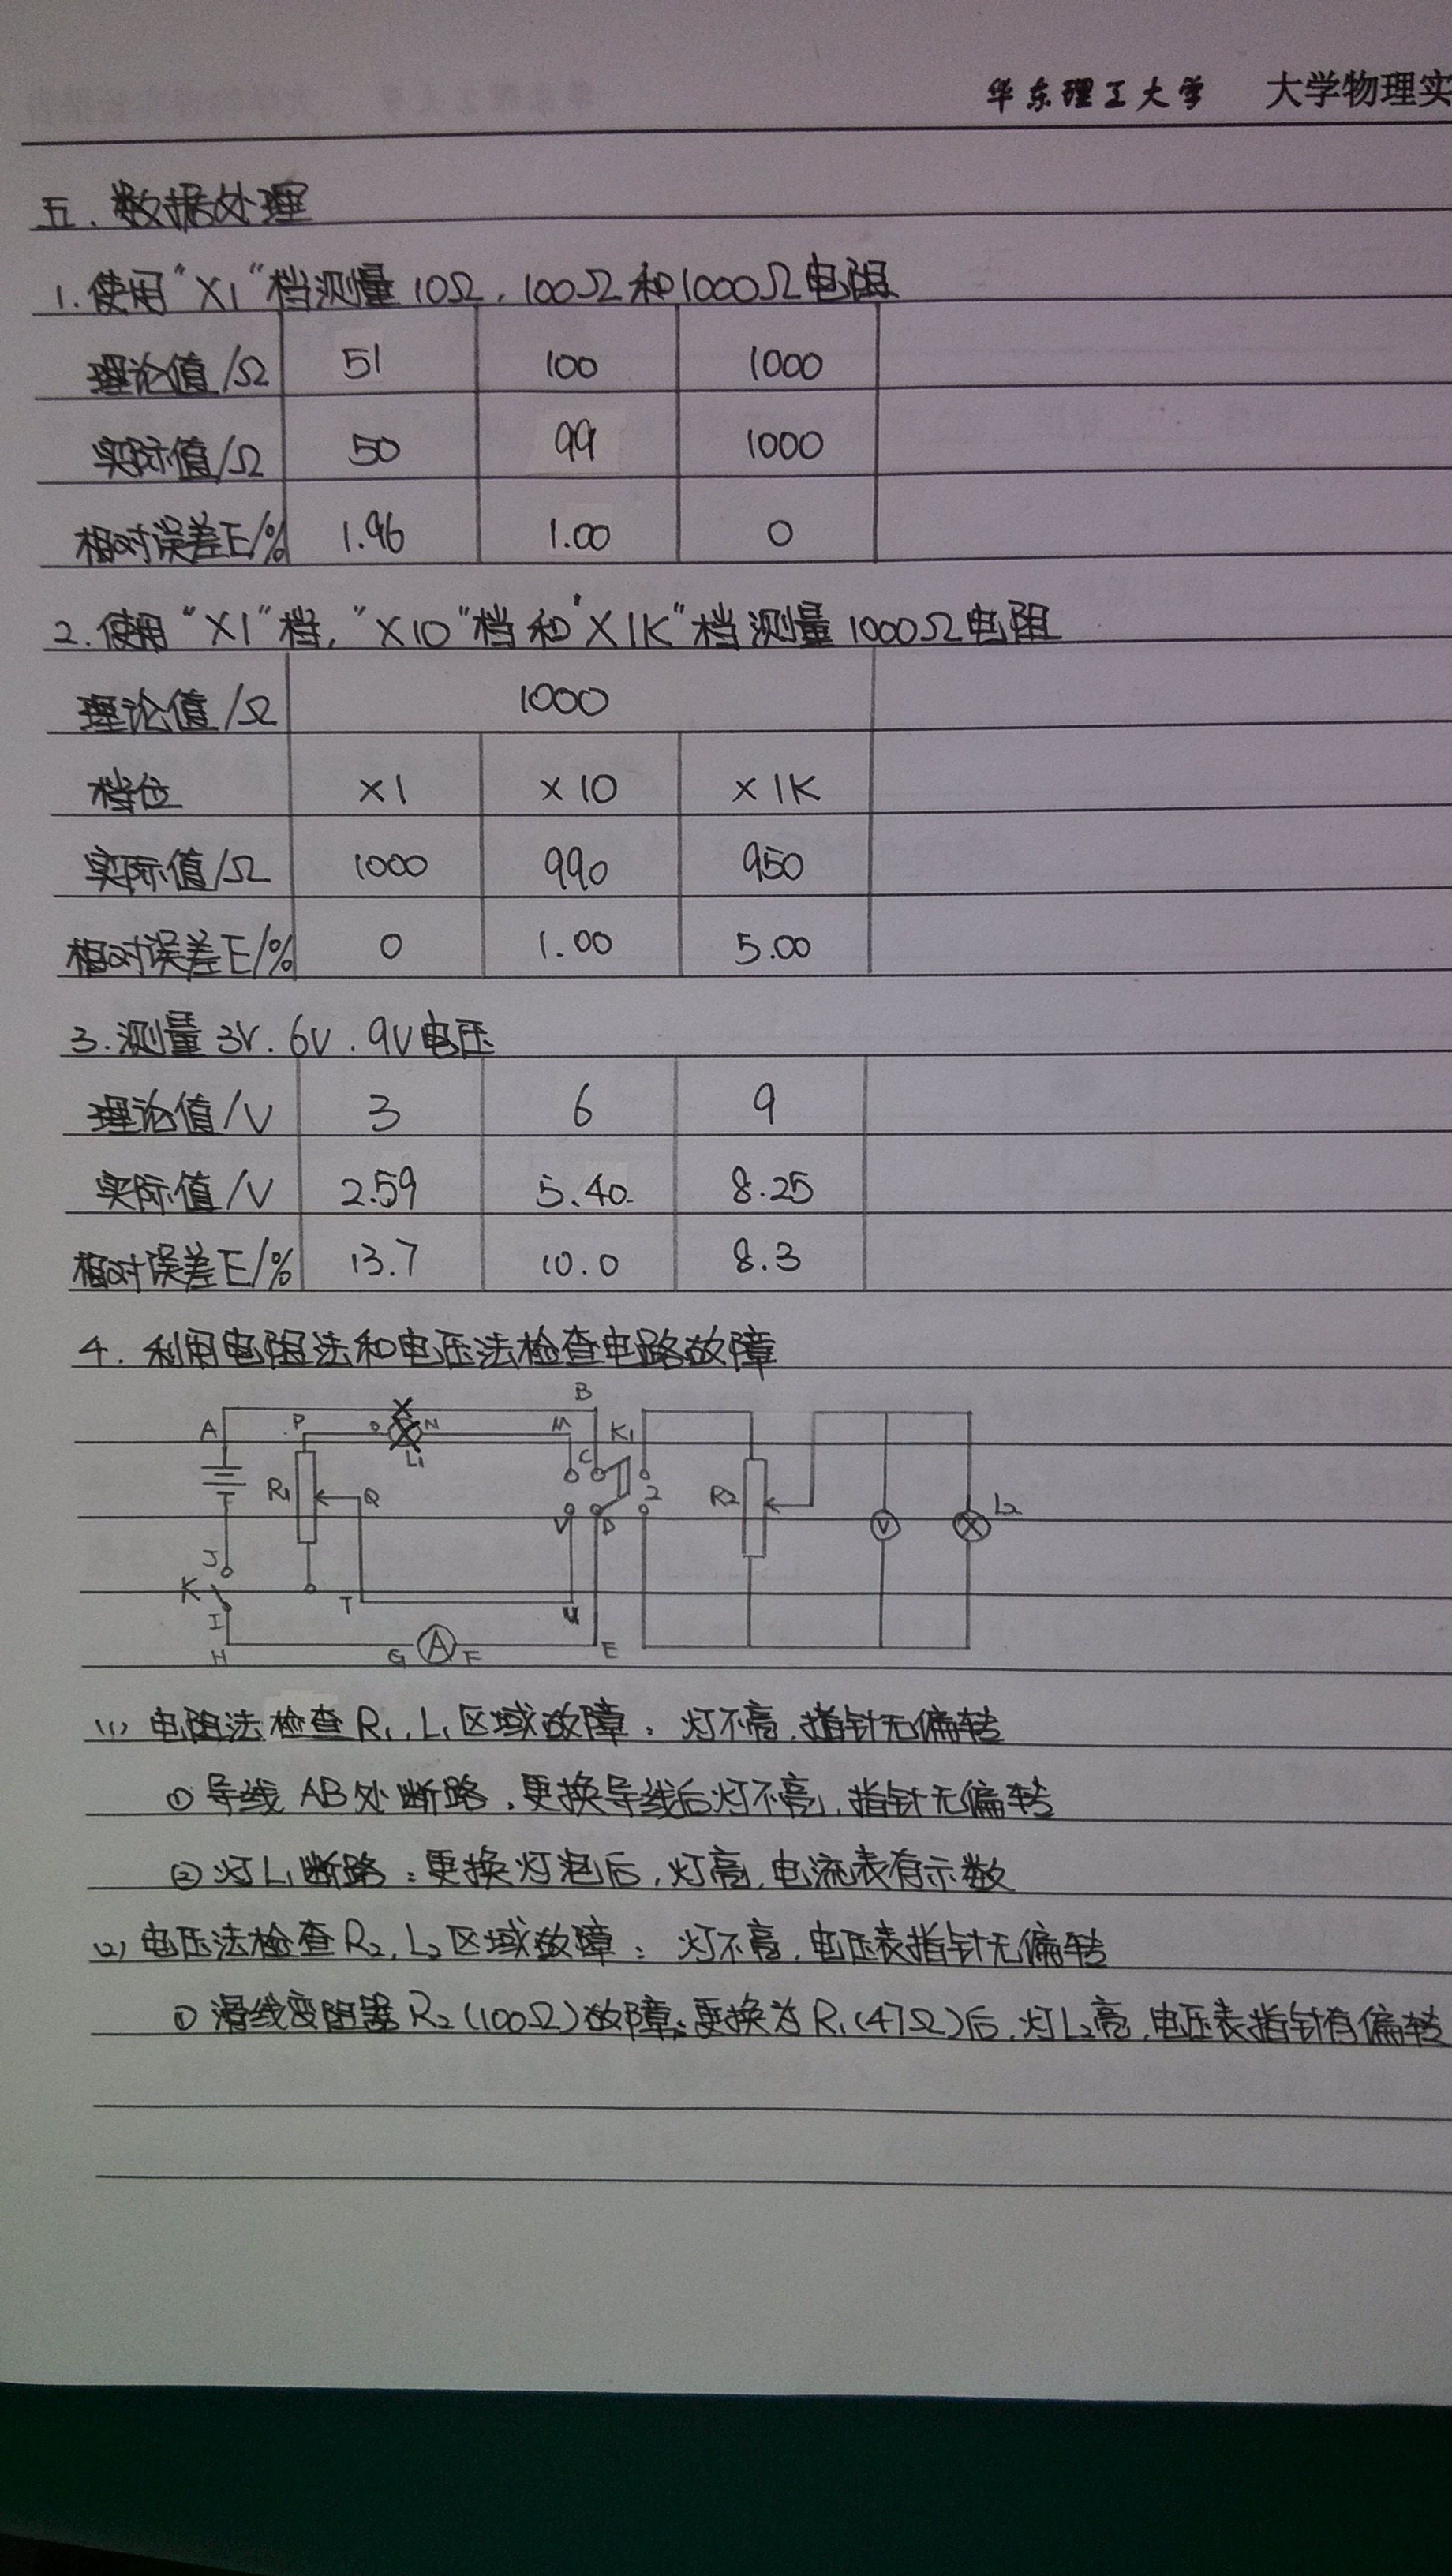 华东理工大学 大学物理实
五.数据处理
1.使用"×1"档测量10Ω,100Ω和1000Ω电阻
理论值/Ω 51 100 1000
实际值/Ω 50 99 1000
相对误差E/% 1.96 1.00 0
2.使用"×1"档,"×10"档和"×1K"档测量1000Ω电阻
理论值/Ω 1000
档位 ×1 ×10 ×1K
实际值/Ω 1000 990 950
相对误差E/% 0 1.00 5.00
3.测量3V.6V.9V电压
理论值/V 3 6 9
实际值/V 2.59 5.40 8.25
相对误差E/% 13.7 10.0 8.3
4.利用电阻法和电压法检查电路故障
B
A P O N M K1
L1 C
R1 Q 2 R2 L2
V D V
J
K T U
I
H G A F E
(1)电阻法检查R1,L1区域故障:灯不亮,指针无偏转
①导线AB处断路,更换导线后灯不亮,指针无偏转
②灯L1断路:更换灯泡后,灯亮,电流表有示数
(2)电压法检查R2,L2区域故障:灯不亮,电压表指针无偏转
①滑线变阻器R2(100Ω)故障:更换为R1(47Ω)后,灯L2亮,电压表指针有偏转